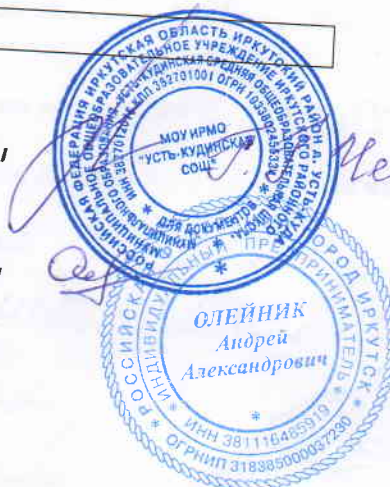 РОССИЙСКАЯ ФЕДЕРАЦИЯ ИРКУТСКАЯ ОБЛАСТЬ ИРКУТСКИЙ РАЙОН д. УСТЬ-КУДА
МУНИЦИПАЛЬНОЕ ОБЩЕОБРАЗОВАТЕЛЬНОЕ УЧРЕЖДЕНИЕ ИРКУТСКОГО РАЙОННОГО
МУНИЦИПАЛЬНОГО ОБРАЗОВАНИЯ "УСТЬ-КУДИНСКАЯ СРЕДНЯЯ ОБЩЕОБРАЗОВАТЕЛЬНАЯ ШКОЛА"
МОУ ИРМО
"УСТЬ-КУДИНСКАЯ
СОШ"
ДЛЯ ДОКУМЕНТОВ
РОССИЙСКАЯ ГОРОД ИРКУТСК
ИНДИВИДУАЛЬНЫЙ ПРЕДПРИНИМАТЕЛЬ
ОЛЕЙНИК
Андрей
Александрович
* ИНН 381116485919 *
* ОГРНИП 318385000037230 *